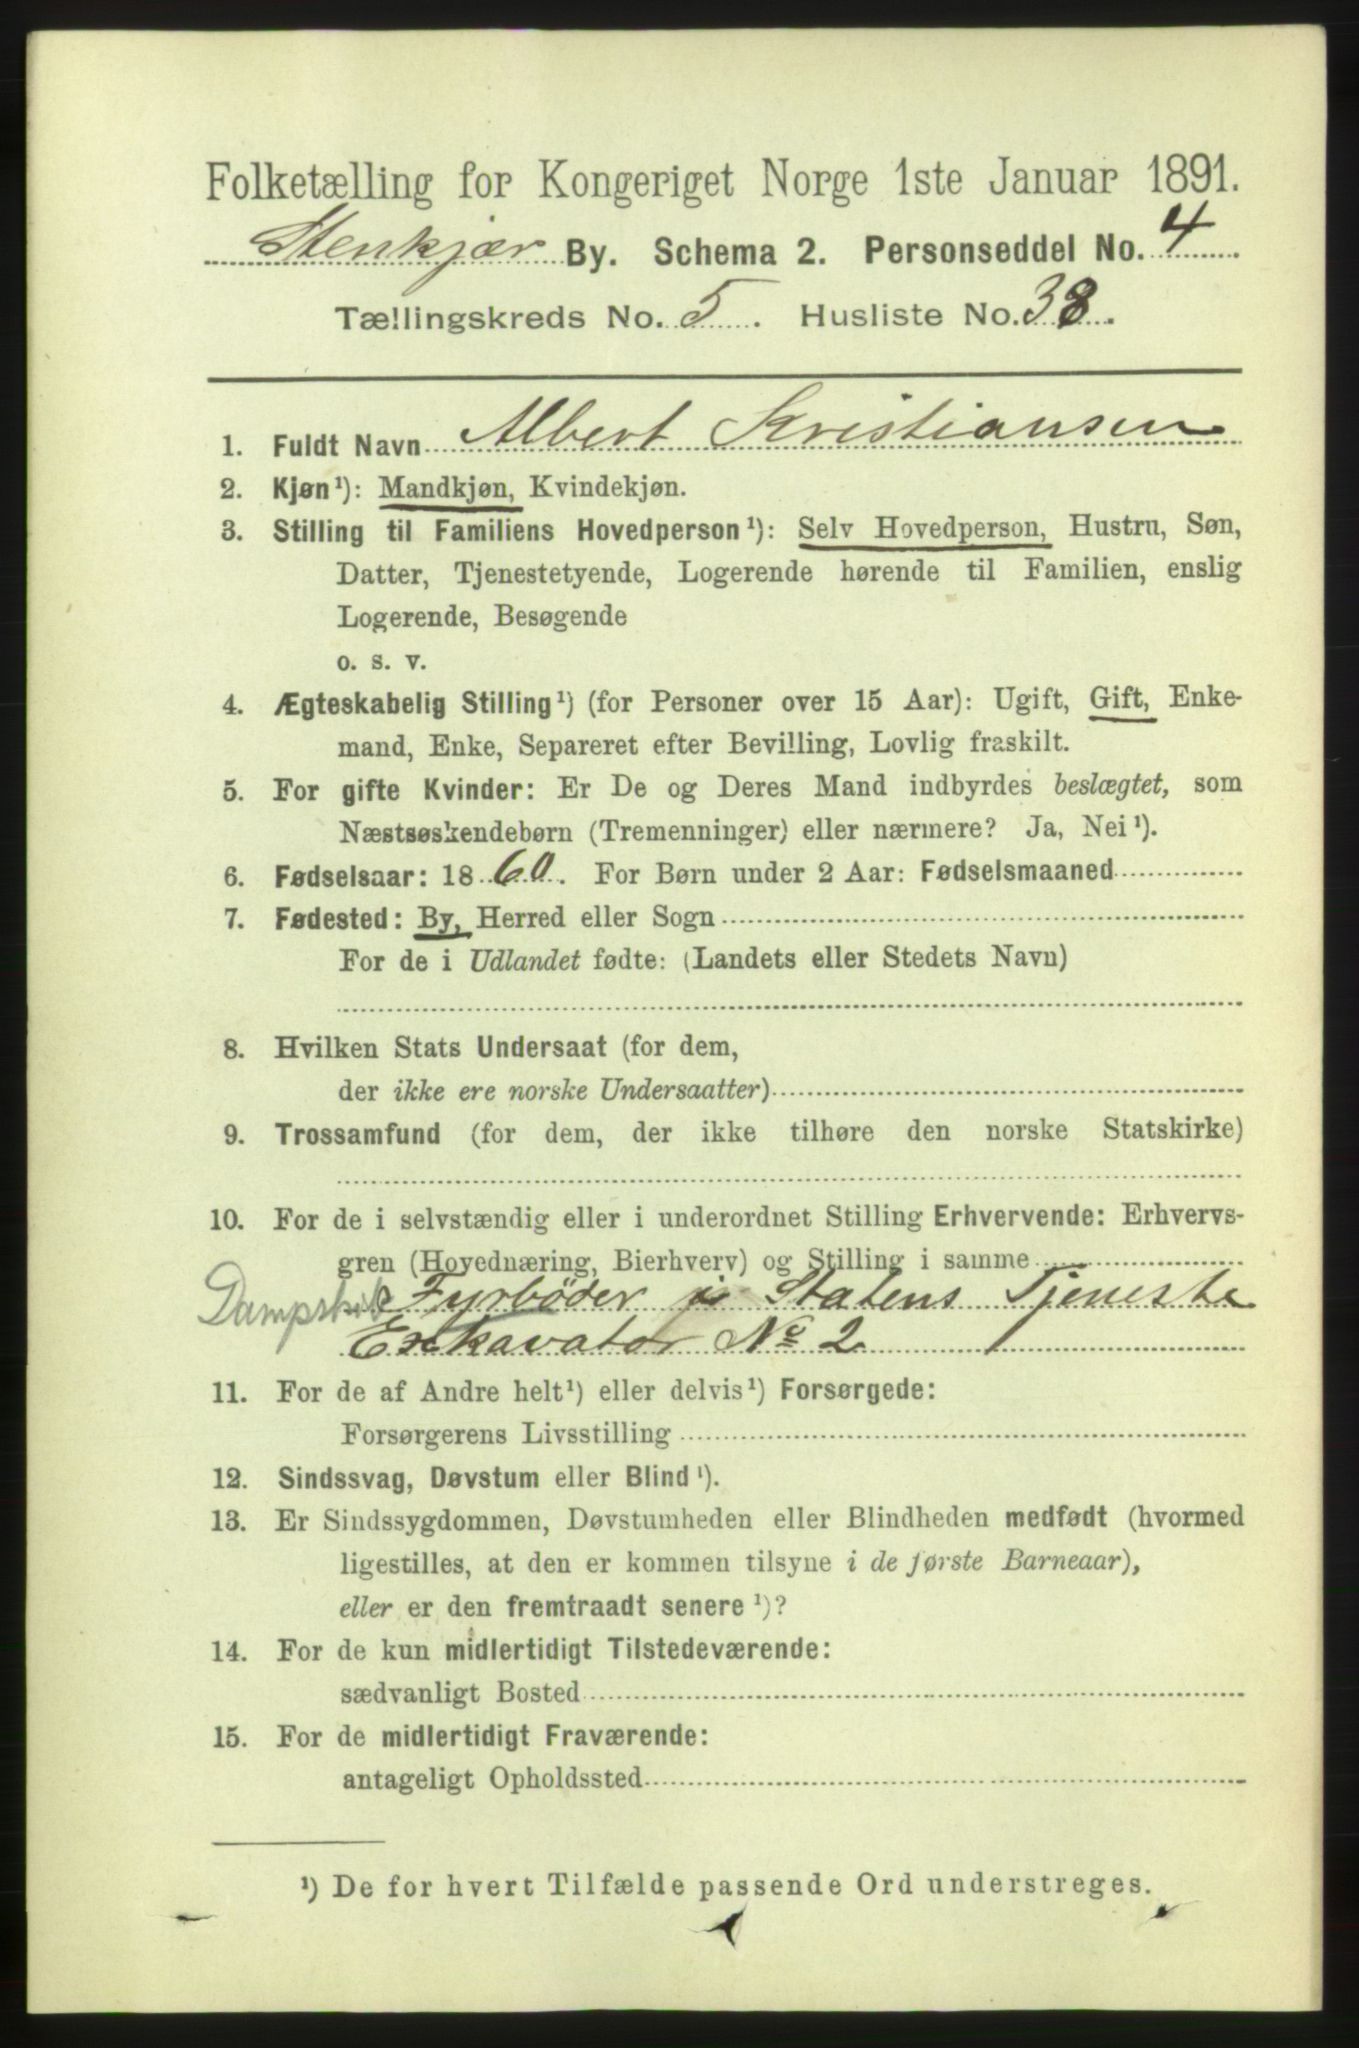 Folketælling for Kongeriget Norge 1ste Januar 1891.
Stenkjær By. Schema 2. Personseddel No. 4
Tællingskreds No. 5. Husliste No. 38.
1. Fuldt Navn Albert Kristiansen
2. Kjøn¹): Mandkjøn, Kvindekjøn.
3. Stilling til Familiens Hovedperson¹): Selv Hovedperson, Hustru, Søn,
Datter, Tjenestetyende, Logerende hørende til Familien, enslig
Logerende, Besøgende
o. s. v.
4. Ægteskabelig Stilling¹) (for Personer over 15 Aar): Ugift, Gift, Enke-
mand, Enke, Separeret efter Bevilling, Lovlig fraskilt.
5. For gifte Kvinder: Er De og Deres Mand indbyrdes beslægtet, som
Næstsøskendebørn (Tremenninger) eller nærmere? Ja, Nei¹).
6. Fødselsaar: 1860. For Børn under 2 Aar: Fødselsmaaned
7. Fødested: By, Herred eller Sogn
For de i Udlandet fødte: (Landets eller Stedets Navn)
8. Hvilken Stats Undersaat (for dem,
der ikke ere norske Undersaatter)
9. Trossamfund (for dem, der ikke tilhøre den norske Statskirke)
10. For de i selvstændig eller i underordnet Stilling Erhvervende: Erhvervs-
gren (Hovednæring, Bierhverv) og Stilling i samme
Dampskib Fyrbøder i Statens Tjeneste
Exkavator No 2
11. For de af Andre helt¹) eller delvis¹) Forsørgede:
Forsørgerens Livsstilling
12. Sindssvag, Døvstum eller Blind¹).
13. Er Sindssygdommen, Døvstumheden eller Blindheden medfødt (hvormed
ligestilles, at den er kommen tilsyne i de første Barneaar),
eller er den fremtraadt senere¹)?
14. For de kun midlertidigt Tilstedeværende:
sædvanligt Bosted
15. For de midlertidigt Fraværende:
antageligt Opholdssted
¹) De for hvert Tilfælde passende Ord understreges.